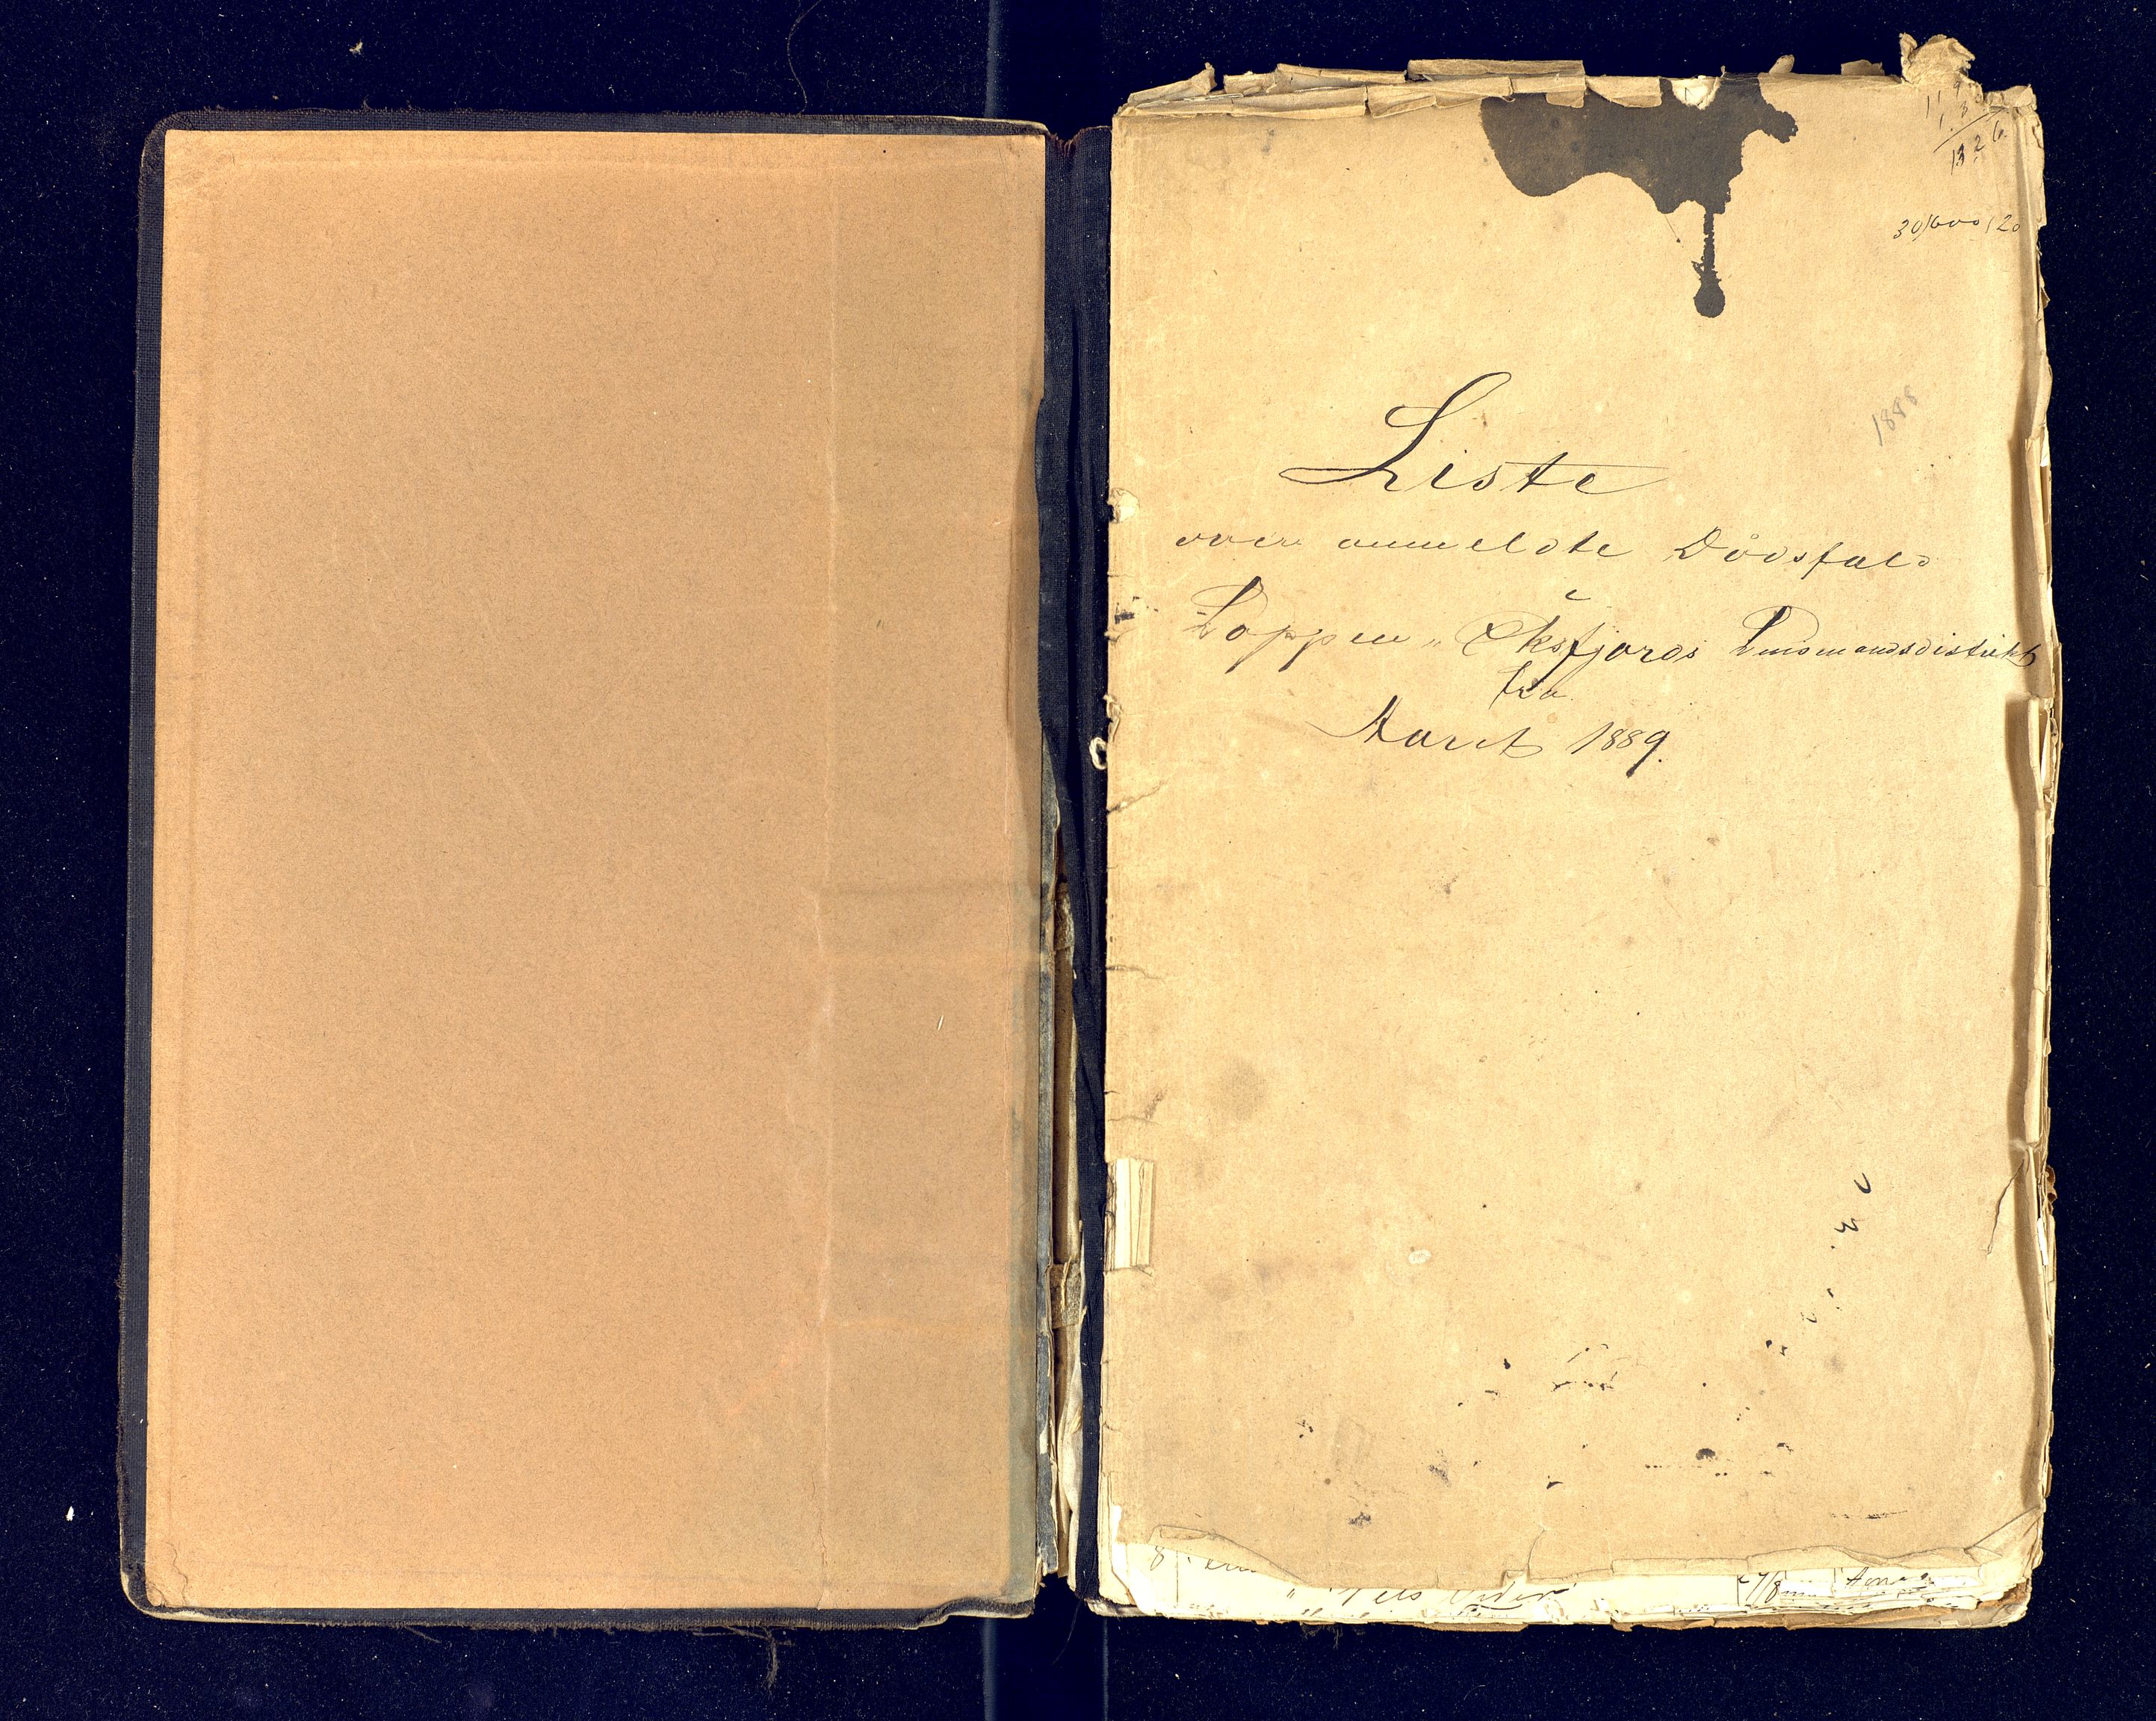 119
13
132 6
30/600/20
1888
Liste
over anmeldte Dødsfald
i
Loppen „ Øksfjords Lensmandsdistrikt
fra
Aaret 1889.
8
" Nels Peder
7/8